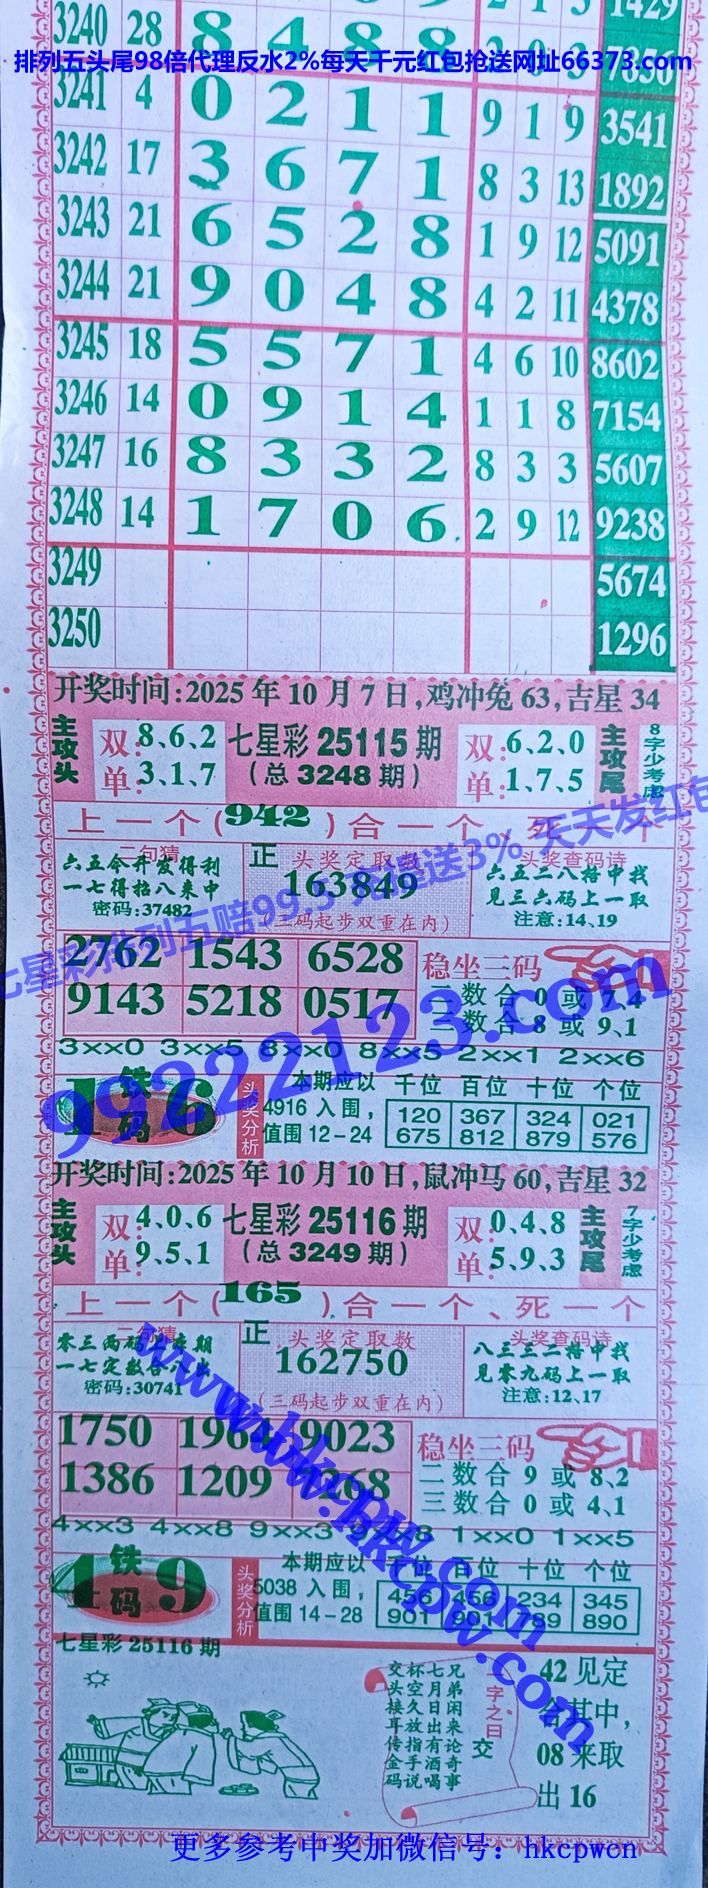 1429
3240 28 8 4 8 8 2 0 3 7356
排列五头尾98倍代理反水2%每天千元红包抢送网址66373.com
3241 4 0 2 1 1 9 1 9 3541
3242 17 3 6 7 1 8 3 13 1892
3243 21 6 5 2 8 1 9 12 5091
3244 21 9 0 4 8 4 2 11 4378
3245 18 5 5 7 1 4 6 10 8602
3246 14 0 9 1 4 1 1 8 7154
3247 16 8 3 3 2 8 3 3 5607
3248 14 1 7 0 6 2 9 12 9238
3249 5674
3250 1296
开奖时间:2025年10月7日,鸡冲兔63,吉星34
主攻头
双:8、6、2
单:3、1、7
七星彩25115期
(总3248期)
双:6、2、0
单:1、7、5
主攻尾
8字少考虑
上一个(942)合一个、死一个
二句猜
六五今开发得利
一七得招八来中
密码:37482
正
头奖定取数
163849
(三码起步双重在内)
头奖查码诗
六五二八格中找
见三六码上一取
注意:14、19
2762 1543 6528
9143 5218 0517
稳坐三码
二数合0或7、4
三数合8或9、1
3××0 3××5 8××0 8××5 2××1 2××6
1铁码6
头奖分析
本期应以
4916入围,
值围12-24
千位 百位 十位 个位
120 367 324 021
675 812 879 576
开奖时间:2025年10月10日,鼠冲马60,吉星32
主攻头
双:4、0、6
单:9、5、1
七星彩25116期
(总3249期)
双:0、4、8
单:5、9、3
主攻尾
7字少考虑
上一个(165)合一个、死一个
二句猜
零三两码 期
一七定数合八出
密码:30741
正
头奖定取数
162750
(三码起步双重在内)
头奖查码诗
八三三二格中找
见零九码上一取
注意:12、17
1750 1964 9023
1386 1209 268
稳坐三码
二数合9或8、2
三数合0或4、1
4××3 4××8 9××3 9××8 1××0 1××5
4铁码9
头奖分析
本期应以
5038入围,
值围14-28
千位 百位 十位 个位
456 456 234 345
901 901 789 890
七星彩25116期
兄弟闲来论奇事
七月日出有酒喝
杯空久放指手说
交头接耳传金码
一字之曰
交
42见定
合其中,
08来取
出16
99222123.com
www.hkcpw.com
更多参考中奖加微信号：hkcpwcn